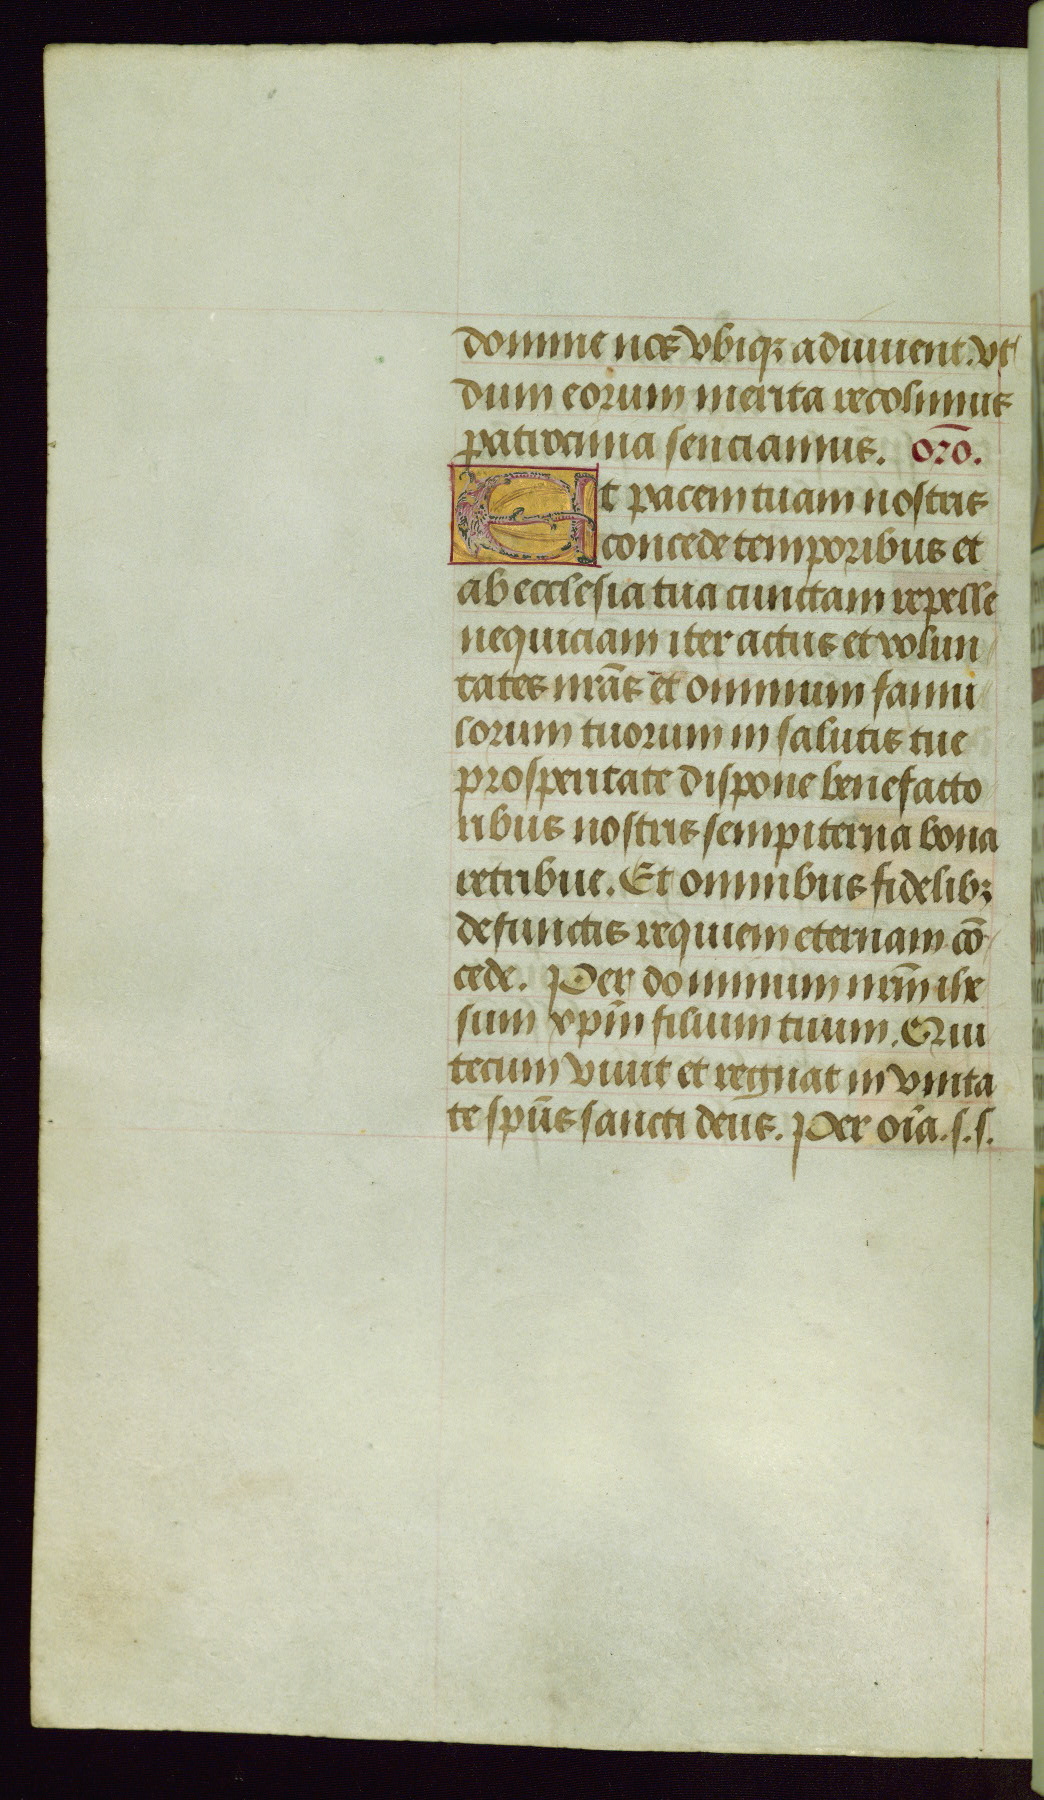 domine nos vbiqȝ adiuuent. vt
dum eorum merita recolimus
patrocinia senciamus. oro̅.
Et pacem tuam nostris
concede temporibus et
ab ecclesia tua cunctam repelle
nequiciam iter actus et volun
tates nr̅as et omnium famu
lorum tuorum in salutis tue
prosperitate dispone benefacto
ribus nostris sempiterna bona
retribue. Et omnibus fidelibȝ
defunctis requiem eternam co̅
cede. Per dominum nr̅m ihe
sum xp̅m filium tuum. Qui
tecum viuit et regnat in vnita
te sp̅us sancti deus. Per oi̅a. s. s.